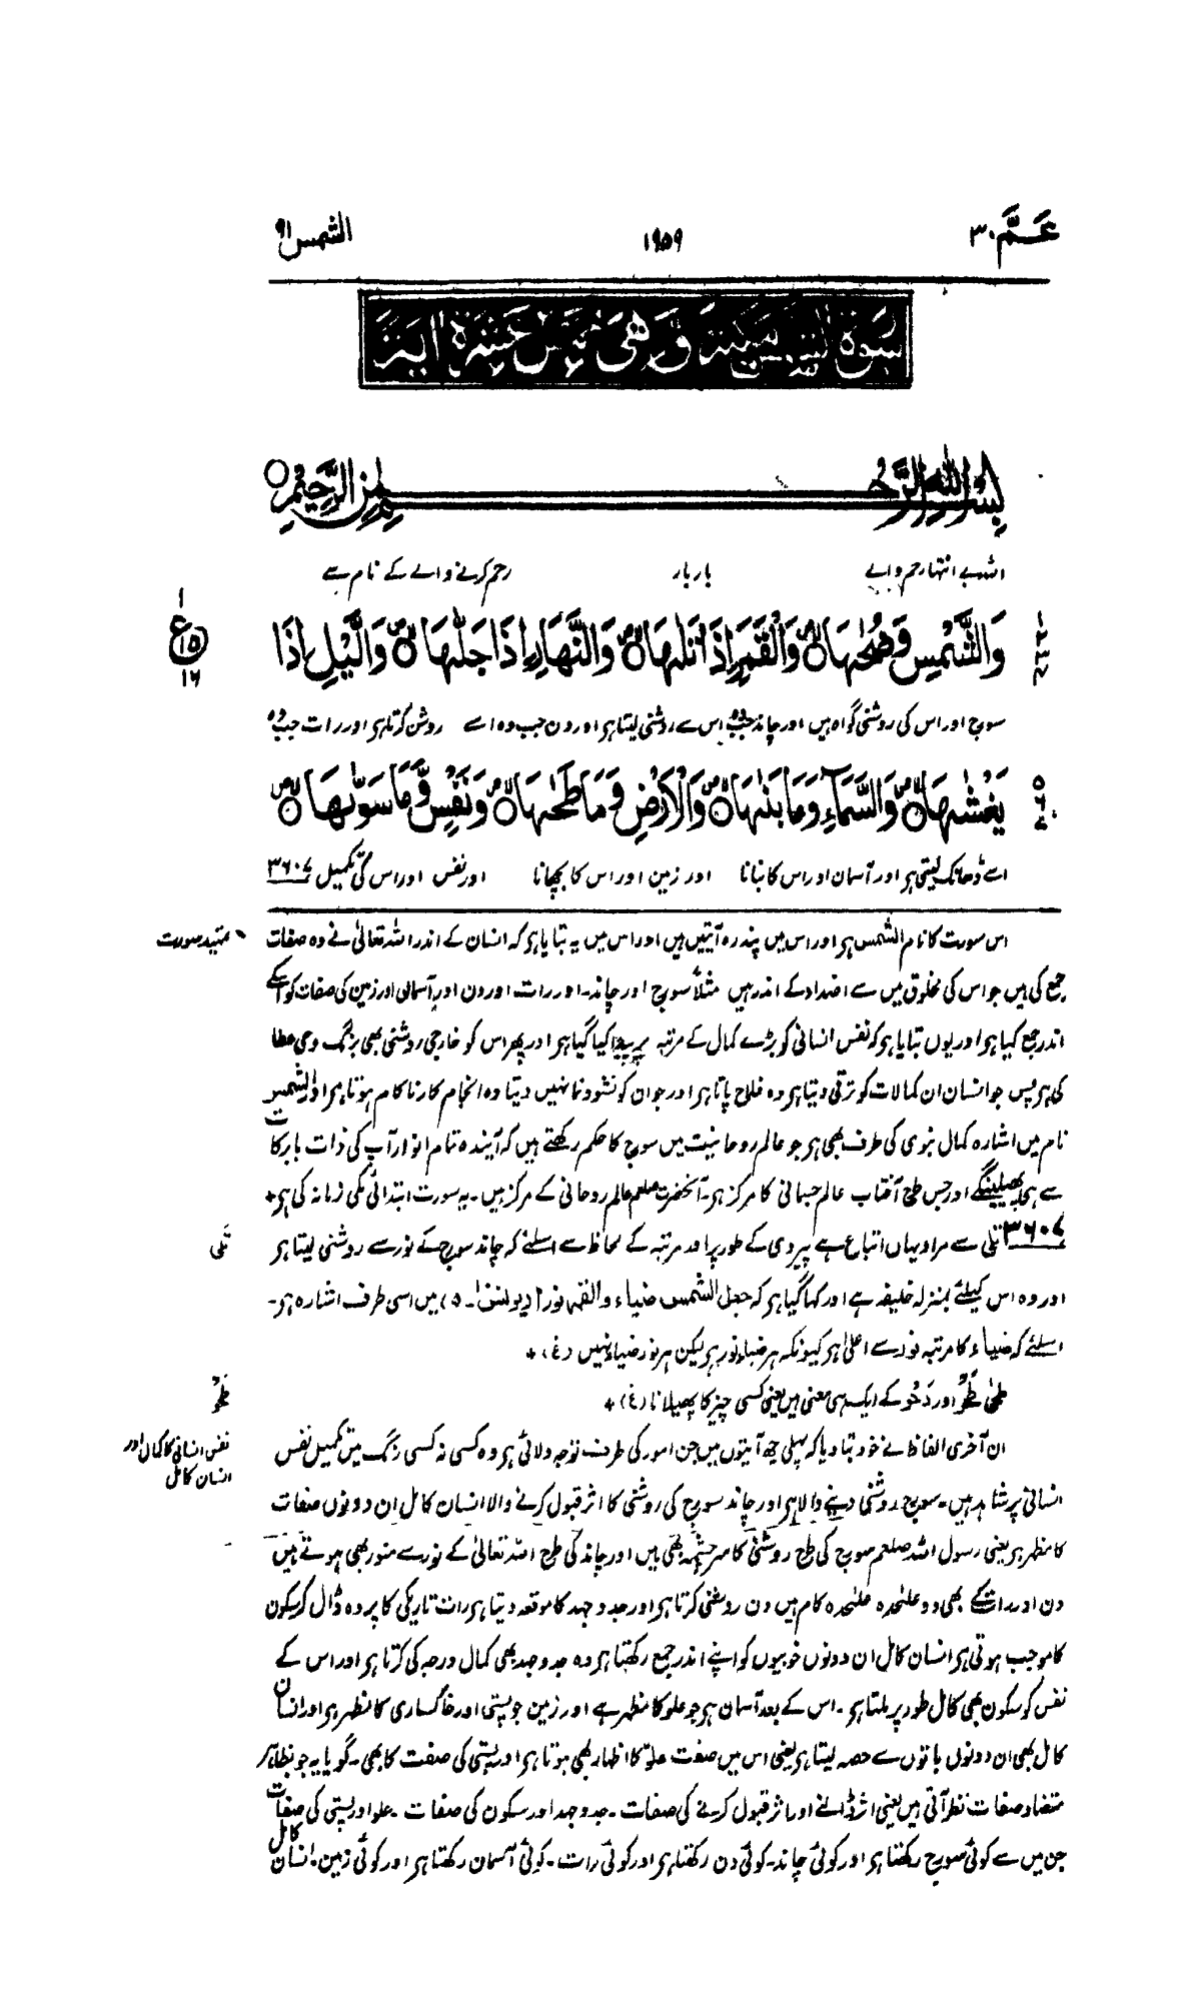 عَمَّ ۳۰ ۱۹۵۹ الشمس ۹۱
سُوْرَةُ الشَّمْسِ مَكِّيَّةٌ وَّهِيَ خَمْسَ عَشْرَةَ اٰيَةً
بِسْمِ اللّٰهِ الرَّحْمٰنِ الرَّحِيْمِ
اللہ بے انتہا رحم والے بار بار رحم کرنے والے کے نام سے
وَالشَّمْسِ وَضُحٰىهَا وَالْقَمَرِ اِذَا تَلٰىهَا وَالنَّهَارِ اِذَا جَلّٰىهَا وَالَّيْلِ اِذَا
ع ۱ ۱۵ ۱۶
سورج اور اس کی روشنی گواہ ہیں اور چاند جب وہ اس سے روشنی لیتا ہے اور دن جب وہ اسے روشن کرتا ہے اور رات جب وہ
يَغْشٰىهَا وَالسَّمَآءِ وَمَا بَنٰىهَا وَالْاَرْضِ وَمَا طَحٰىهَا وَنَفْسٍ وَّمَا سَوّٰىهَا
اسے ڈھانک لیتی ہے اور آسمان اور اس کا بنانا اور زمین اور اس کا بچھانا اور نفس اور اس کی تکمیل ۳۶۰۷
اس سورت کا نام الشمس ہے اور اس میں پندرہ آیتیں ہیں اور اس میں یہ بتایا ہے کہ انسان کے اندر اللہ تعالیٰ نے وہ صفات
تمہید سورت
جمع کی ہیں جو اس کی مخلوق میں سے اضداد کے اندر ہیں مثلاً سورج اور چاند۔ اور رات اور دن اور آسمان اور زمین کی صفات کو اسکے
اندر جمع کیا ہے اور یوں بتایا ہے کہ نفس انسانی کو بڑے کمال کے مرتبہ پر پیدا کیا گیا ہے اور پھر اس کو خارجی روشنی بھی برنگ وحی عطا
کی ہے پس جو انسان ان کمالات کو ترقی دیتا ہے وہ فلاح پاتا ہے اور جو ان کو نشوونما نہیں دیتا وہ انجام کار ناکام ہوتا ہے اور الشمس
نام میں اشارہ کمال نبوی کی طرف بھی ہے جو عالم روحانیت میں سورج کا حکم رکھتے ہیں کہ آیندہ تمام انوار آپ کی ذات بابرکات
سے ہی پھیلینگے اور جس طرح آفتاب عالم جسمانی کا مرکز ہے۔ آنحضرت صلعم عالم روحانی کے مرکز ہیں۔ یہ سورت ابتدائی مکی زمانہ کی ہے +
۳۶۰۷ تلٰی سے مراد یہاں اتباع ہے پیروی کے طور پر اور مرتبہ کے لحاظ سے اسلئے کہ چاند سورج کے نور سے روشنی لیتا ہے
تلٰی
اور وہ اس کیلئے بمنزلہ خلیفہ ہے اور کہا گیا ہے کہ جعل الشمس ضیاء والقمر نورا (یونس ۱۰۔ ۵) میں اسی طرف اشارہ ہے۔
اسلئے کہ ضیاء کا مرتبہ نور سے اعلیٰ ہے کیونکہ ہر ضیاء نور ہے لیکن ہر نور ضیاء نہیں (غ) +
طحٰی طَحْوٌ اور دَحْوٌ کے ایک ہی معنی ہیں یعنی کسی چیز کا پھیلانا (غ) +
طَحْوٌ
ان آخری الفاظ نے خود بتا دیا کہ پہلی چھ آیتوں میں جن امور کی طرف توجہ دلائی ہے وہ کسی نہ کسی رنگ میں تکمیل نفس
نفس انسانی کا کمال اور
انسان کامل
انسانی پر شاہد ہیں۔ سورج روشنی دینے والا ہے اور چاند سورج کی روشنی کا اثر قبول کرنے والا انسان کامل ان دونوں صفات
کا مظہر ہے یعنی رسول اللہ صلعم سورج کی طرح روشنی کا سرچشمہ بھی ہیں اور چاند کی طرح اللہ تعالیٰ کے نور سے منور بھی ہوتے ہیں
دن اور رات کے بھی دو علٰحدہ علٰحدہ کام ہیں دن روشنی کرتا ہے اور جد و جہد کا موقعہ دیتا ہے رات تاریکی کا پردہ ڈال کر سکون
کا موجب ہوتی ہے انسان کامل ان دونوں خوبیوں کو اپنے اندر جمع رکھتا ہے وہ جد وجہد بھی کمال درجہ کی کرتا ہے اور اس کے
نفس کو سکون بھی کامل طور پر ملتا ہے۔ اس کے بعد آسمان ہے جو علو کا مظہر ہے اور زمین جو پستی اور خاکساری کا مظہر ہے اور انسان
کامل بھی ان دونوں باتوں سے حصہ لیتا ہے یعنی اس میں صفت علو کا اظہار بھی ہوتا ہے اور پستی کی صفت کا بھی۔ گویا یہ جو بظاہر
متضاد صفات نظر آتی ہیں یعنی اثر ڈالنے اور اثر قبول کرنے کی صفات۔ جد و جہد اور سکون کی صفات۔ علو اور پستی کی صفات
جن میں سے کوئی سورج رکھتا ہے اور کوئی چاند۔ کوئی دن رکھتا ہے اور کوئی رات۔ کوئی آسمان رکھتا ہے اور کوئی زمین۔ انسان کامل